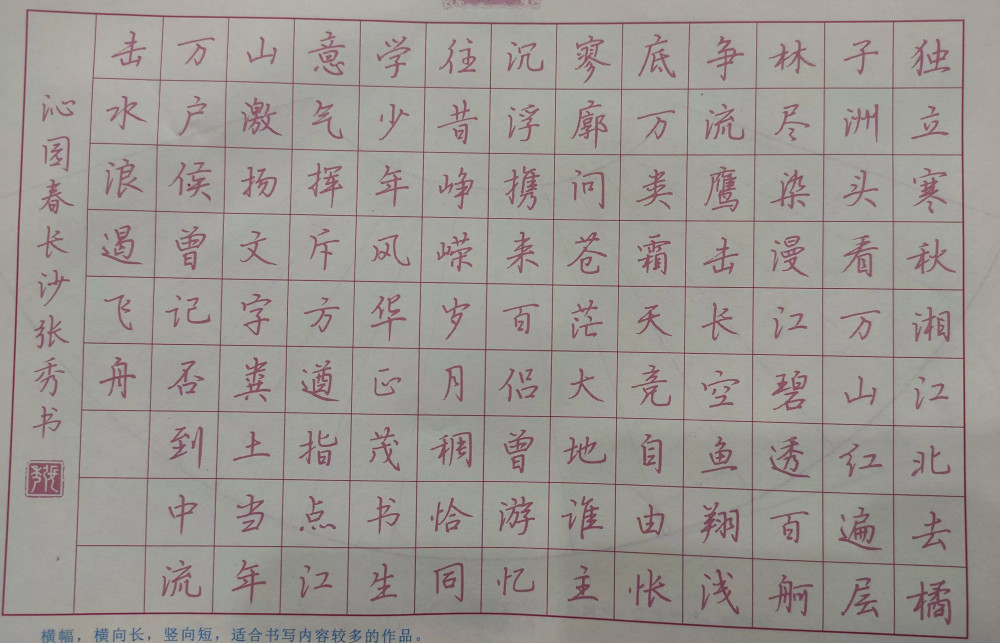 独立寒秋湘江北去橘
子洲头看万山红遍层
林尽染漫江碧透百舸
争流鹰击长空鱼翔浅
底万类霜天竞自由怅
寥廓问苍茫大地谁主
沉浮携来百侣曾游忆
往昔峥嵘岁月稠恰同
学少年风华正茂书生
意气挥斥方遒指点江
山激扬文字粪土当年
万户侯曾记否到中流
击水浪遏飞舟
沁园春长沙张秀书
横幅，横向长，竖向短，适合书写内容较多的作品。